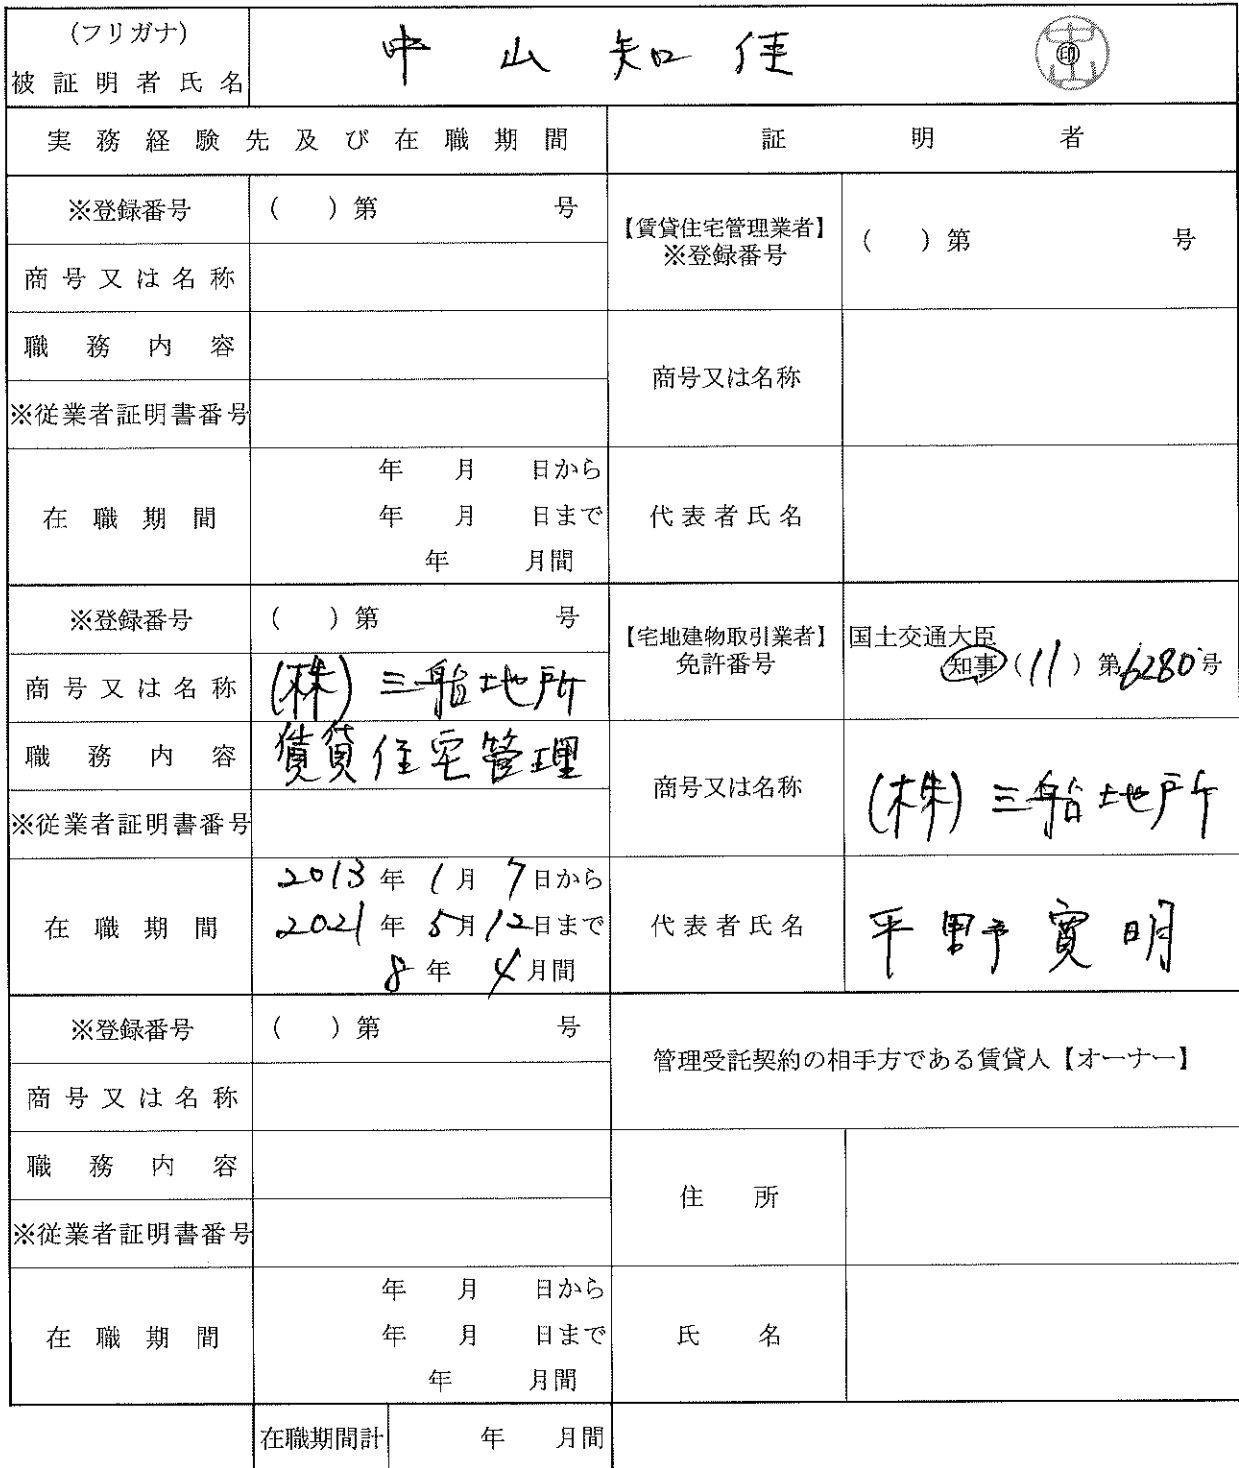 (フリガナ)
被証明者氏名 中山知佳 印
実務経験先及び在職期間 証明者
※登録番号 ( ) 第 号 【賃貸住宅管理業者】※登録番号 ( ) 第 号
商号又は名称
職務内容 商号又は名称
※従業者証明書番号
在職期間 年 月 日から
年 月 日まで 代表者氏名
年 月間
※登録番号 ( ) 第 号 【宅地建物取引業者】免許番号 国土交通大臣
知事 (11) 第6280号
商号又は名称 (株)三船地所
職務内容 賃貸住宅管理 商号又は名称 (株)三船地所
※従業者証明書番号
在職期間 2013年1月7日から
2021年5月12日まで 代表者氏名 平野寛明
8年4月間
※登録番号 ( ) 第 号 管理受託契約の相手方である賃貸人【オーナー】
商号又は名称
職務内容 住所
※従業者証明書番号
在職期間 年 月 日から
年 月 日まで 氏名
年 月間
在職期間計 年 月間